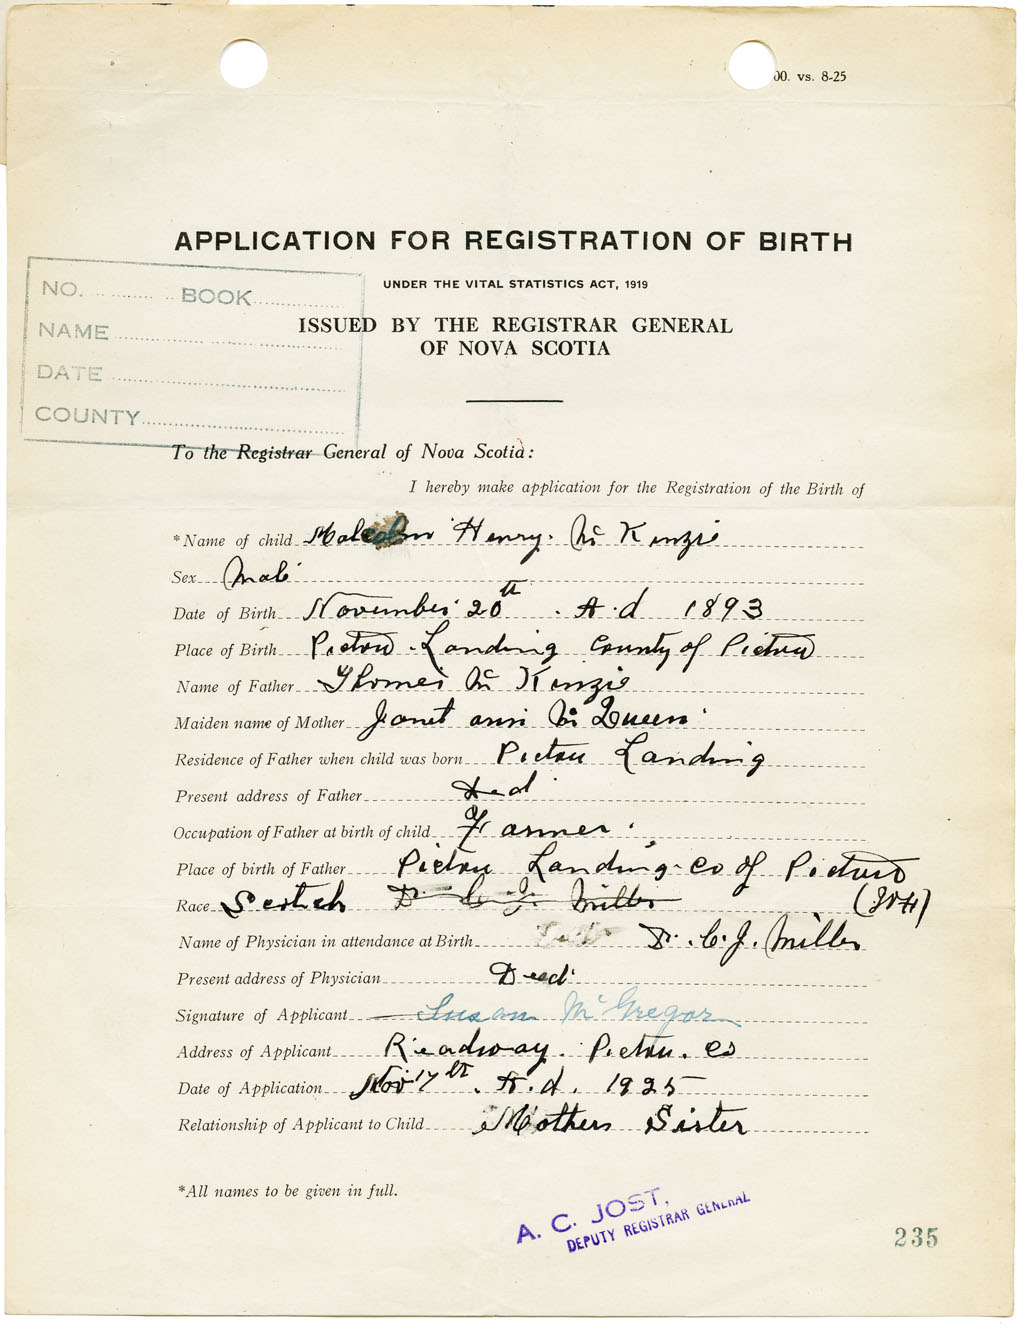 00. vs. 8-25
APPLICATION FOR REGISTRATION OF BIRTH
UNDER THE VITAL STATISTICS ACT, 1919
ISSUED BY THE REGISTRAR GENERAL
OF NOVA SCOTIA
NO. BOOK
NAME
DATE
COUNTY
To the Registrar General of Nova Scotia:
I hereby make application for the Registration of the Birth of
*Name of child Malcolm Henry. Mc Kenzie
Sex Male
Date of Birth November 20th . A.d 1893
Place of Birth Pictou Landing County of Pictou
Name of Father Thomas Mc Kenzie
Maiden name of Mother Janet ann Mc Queen
Residence of Father when child was born Pictou Landing
Present address of Father Ded
Occupation of Father at birth of child Farmer
Place of birth of Father Pictou Landing Co of Pictou
Race Scotch Dr C. J. Miller
Name of Physician in attendance at Birth Dr. C. J. Miller
Present address of Physician Dead
Signature of Applicant Susan McGregor
Address of Applicant Readway. Pictou. Co
Date of Application Nov 17th . A.d. 1925
Relationship of Applicant to Child Mothers Sister
*All names to be given in full.
A. C. JOST,
DEPUTY REGISTRAR GENERAL
235